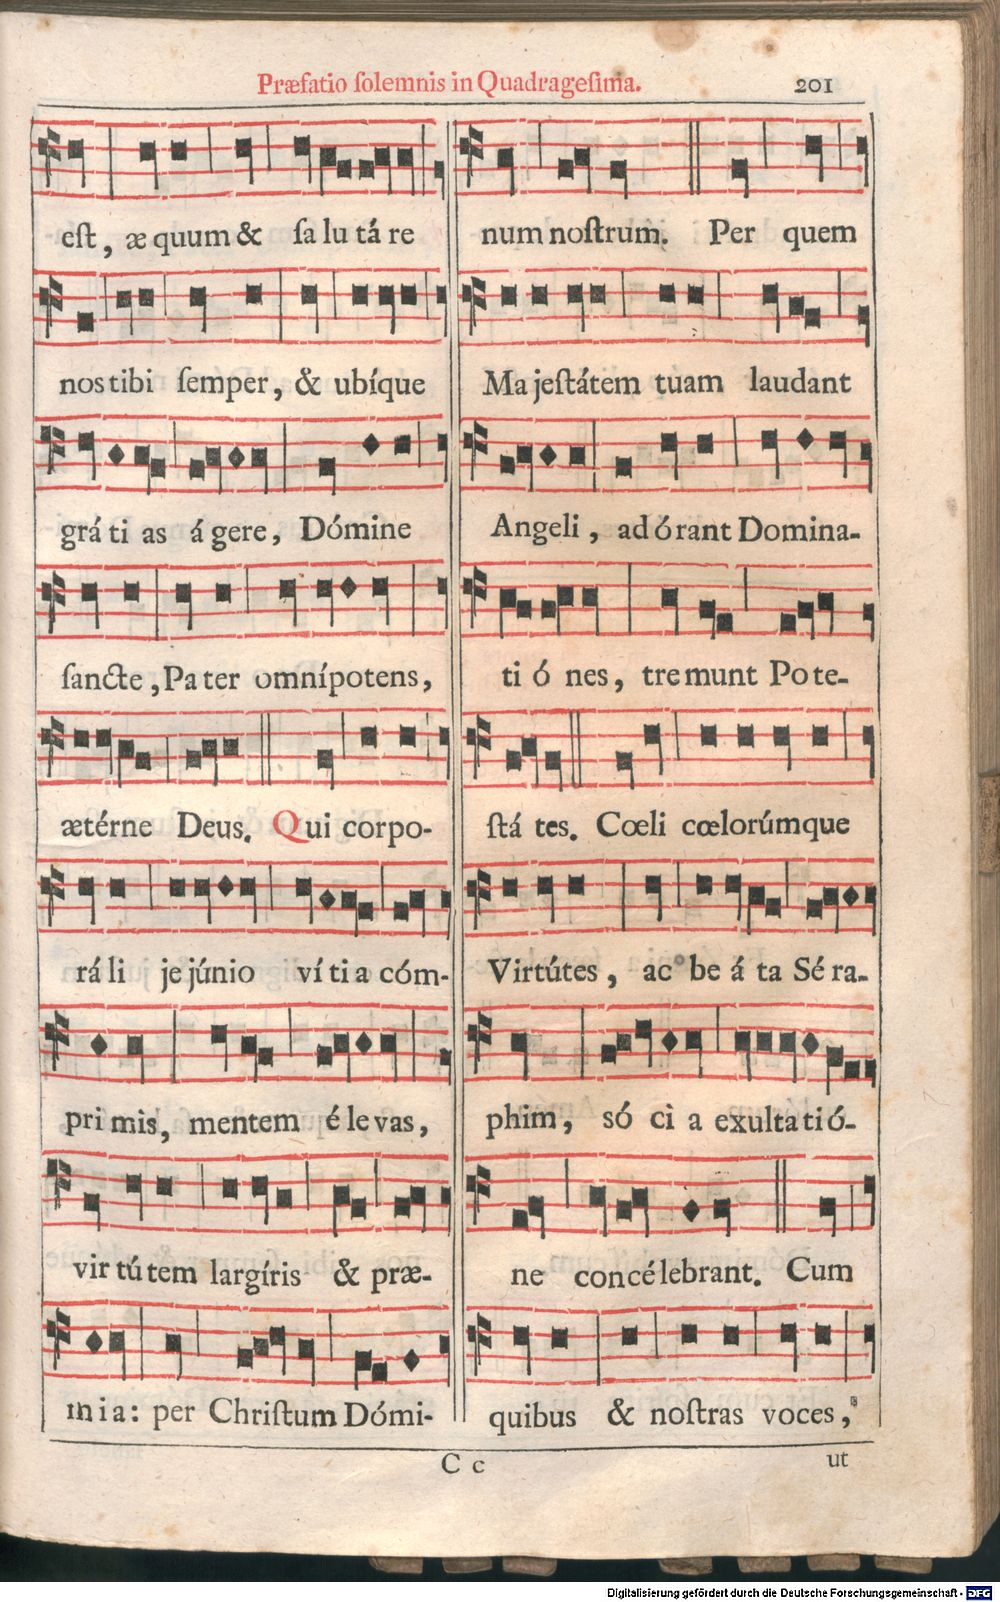 Præfatio ſolemnis in Quadrageſima. 201
eſt, æ quum & ſa lu tá re
nos tibi ſemper, & ubíque
grá ti as á gere, Dómine
ſancte, Pa ter omnípotens,
ætérne Deus. Qui corpo-
rá li je júnio ví ti a cóm-
pri mis, mentem é le vas,
vir tú tem largíris & præ-
mia: per Chriſtum Dómi-
num noſtrum. Per quem
Ma jeſtátem tuam laudant
Angeli, ad ó rant Domina-
ti ó nes, tre munt Po te-
ſtá tes. Cœli cœlorúmque
Virtútes, ac be á ta Sé ra-
phim, só ci a exulta ti ó-
ne concé lebrant. Cum
quibus & noſtras voces,
C c ut
Digitalisierung gefördert durch die Deutsche Forschungsgemeinschaft - DFG